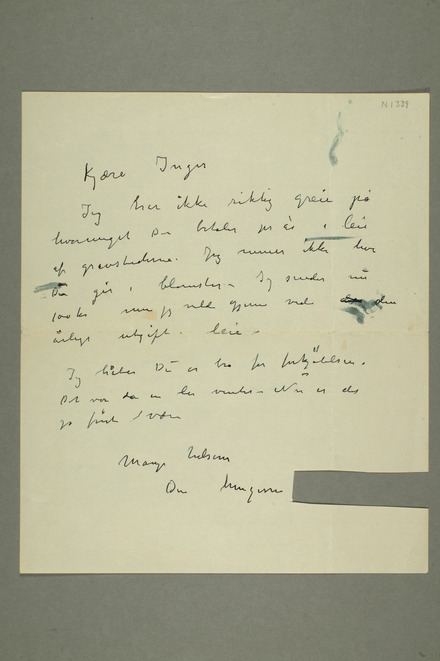 N 1339
Kjære Inger
Jeg har ikke riktig greie på
hvormeget Du betaler per år i leie
af gravstederne. Jeg mener ikke hva
Du gir i blomster – Jeg sender nu
100 kr men jeg vild gjerne vide den
årlige utgift. leie –
Jeg håber Du er bra for forkjølelsen.
Det var da en lei vinter – Nu er det
jo først
Mange hilsener
Din